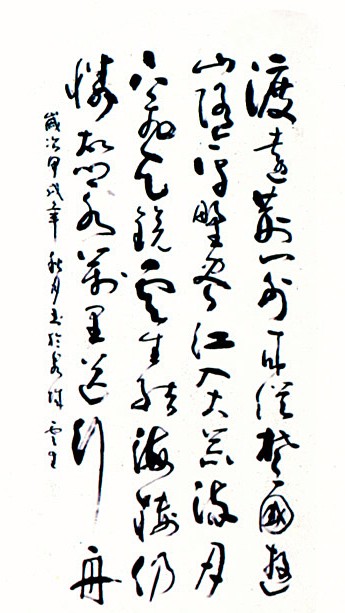 渡遠荊門外來從楚國遊
山隨平野盡江入大荒流月
下飛天鏡雲生結海樓仍
憐故鄉水萬里送行舟
歲次甲戌年秋月書於